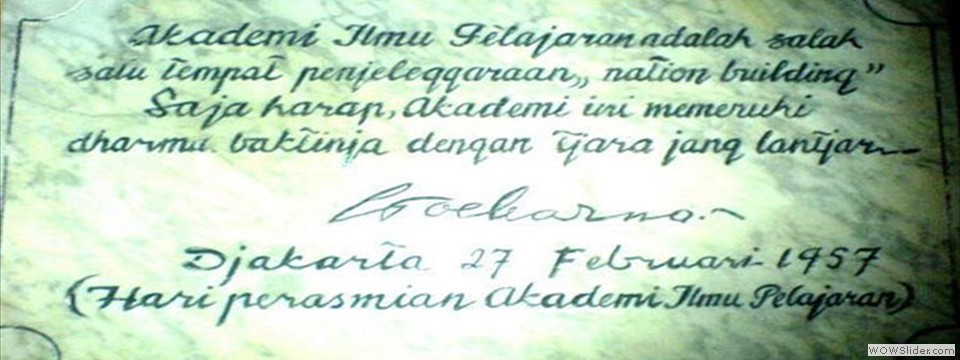 Akademi Ilmu Pelajaran adalah salah
satu tempat penjelenggaraan „nation building”
Saja harap, Akademi ini memenuhi
dharma baktinja dengan tjara jang lantjar
Soekarno.
Djakarta 27 Februari 1957
(Hari perasmian Akademi Ilmu Pelajaran)
WOWSlider.com